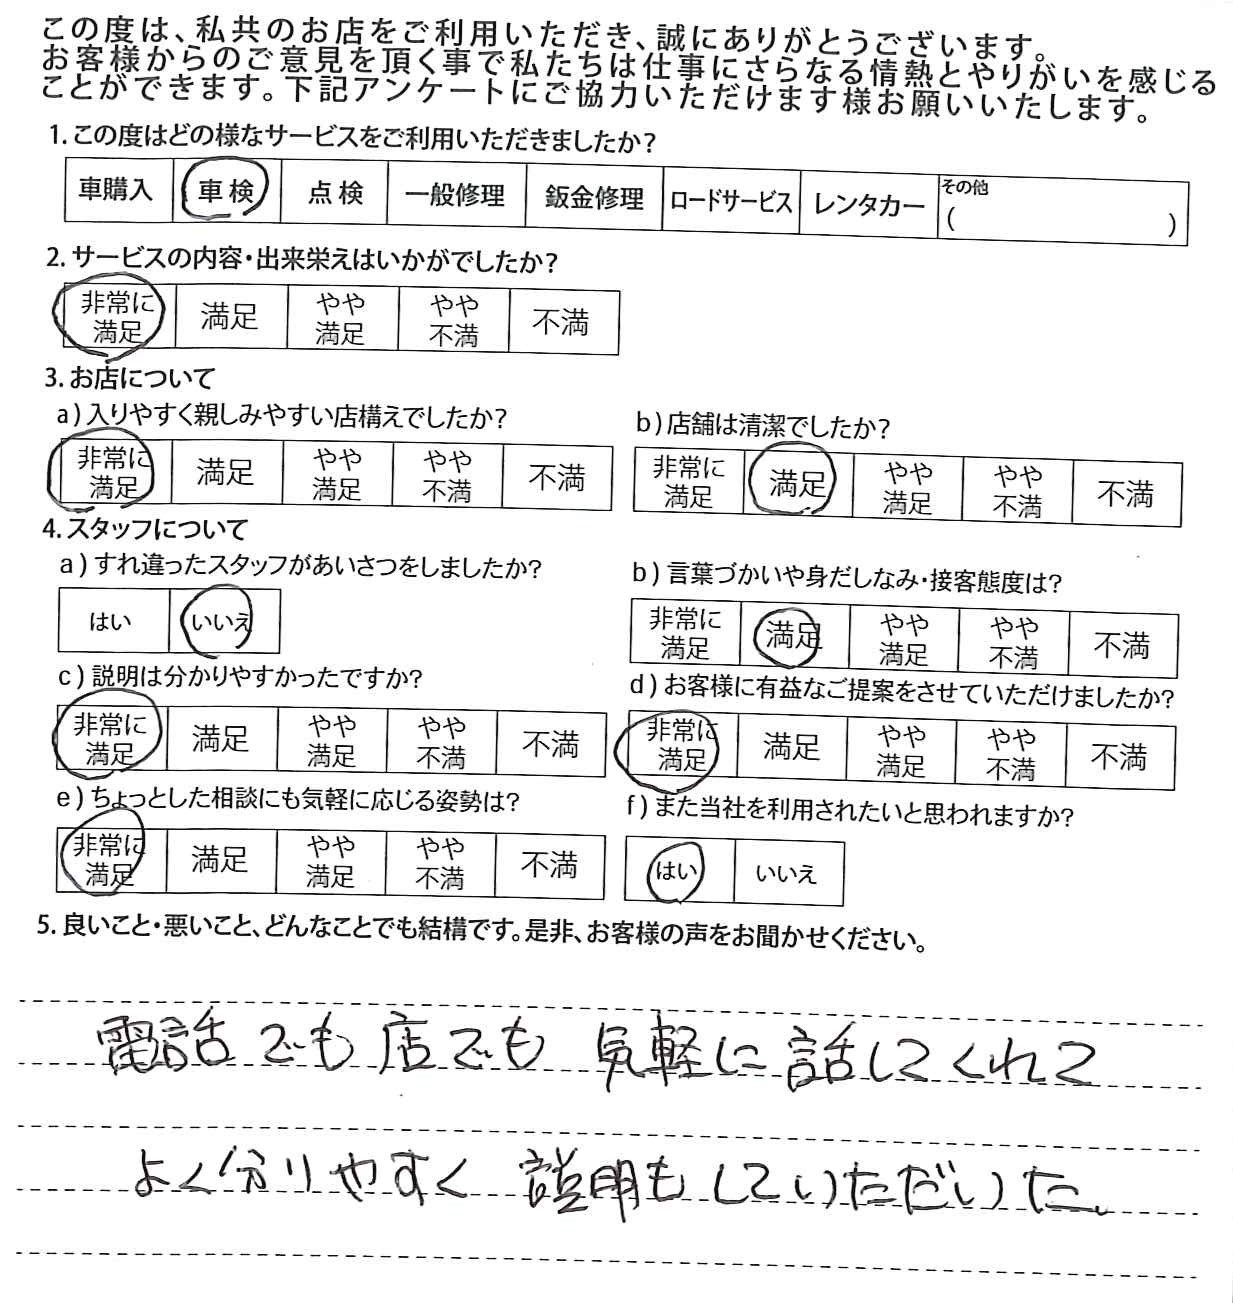 この度は、私共のお店をご利用いただき、誠にありがとうございます。
お客様からのご意見を頂く事で私たちは仕事にさらなる情熱とやりがいを感じる
ことができます。下記アンケートにご協力いただけます様お願いいたします。
1.この度はどの様なサービスをご利用いただきましたか?
車購入 車検 点検 一般修理 鈑金修理 ロードサービス レンタカー その他
( )
2.サービスの内容・出来栄えはいかがでしたか?
非常に 満足 やや やや 不満
満足 満足 不満
3.お店について
a)入りやすく親しみやすい店構えでしたか?
非常に 満足 やや やや 不満
満足 満足 不満
b)店舗は清潔でしたか?
非常に 満足 やや やや 不満
満足 満足 不満
4.スタッフについて
a)すれ違ったスタッフがあいさつをしましたか?
はい いいえ
b)言葉づかいや身だしなみ・接客態度は?
非常に 満足 やや やや 不満
満足 満足 不満
c)説明は分かりやすかったですか?
非常に 満足 やや やや 不満
満足 満足 不満
d)お客様に有益なご提案をさせていただけましたか?
非常に 満足 やや やや 不満
満足 満足 不満
e)ちょっとした相談にも気軽に応じる姿勢は?
非常に 満足 やや やや 不満
満足 満足 不満
f)また当社を利用されたいと思われますか?
はい いいえ
5.良いこと・悪いこと、どんなことでも結構です。是非、お客様の声をお聞かせください。
電話でも店でも 気軽に話してくれて
よく分りやすく 説明もしていただいた。